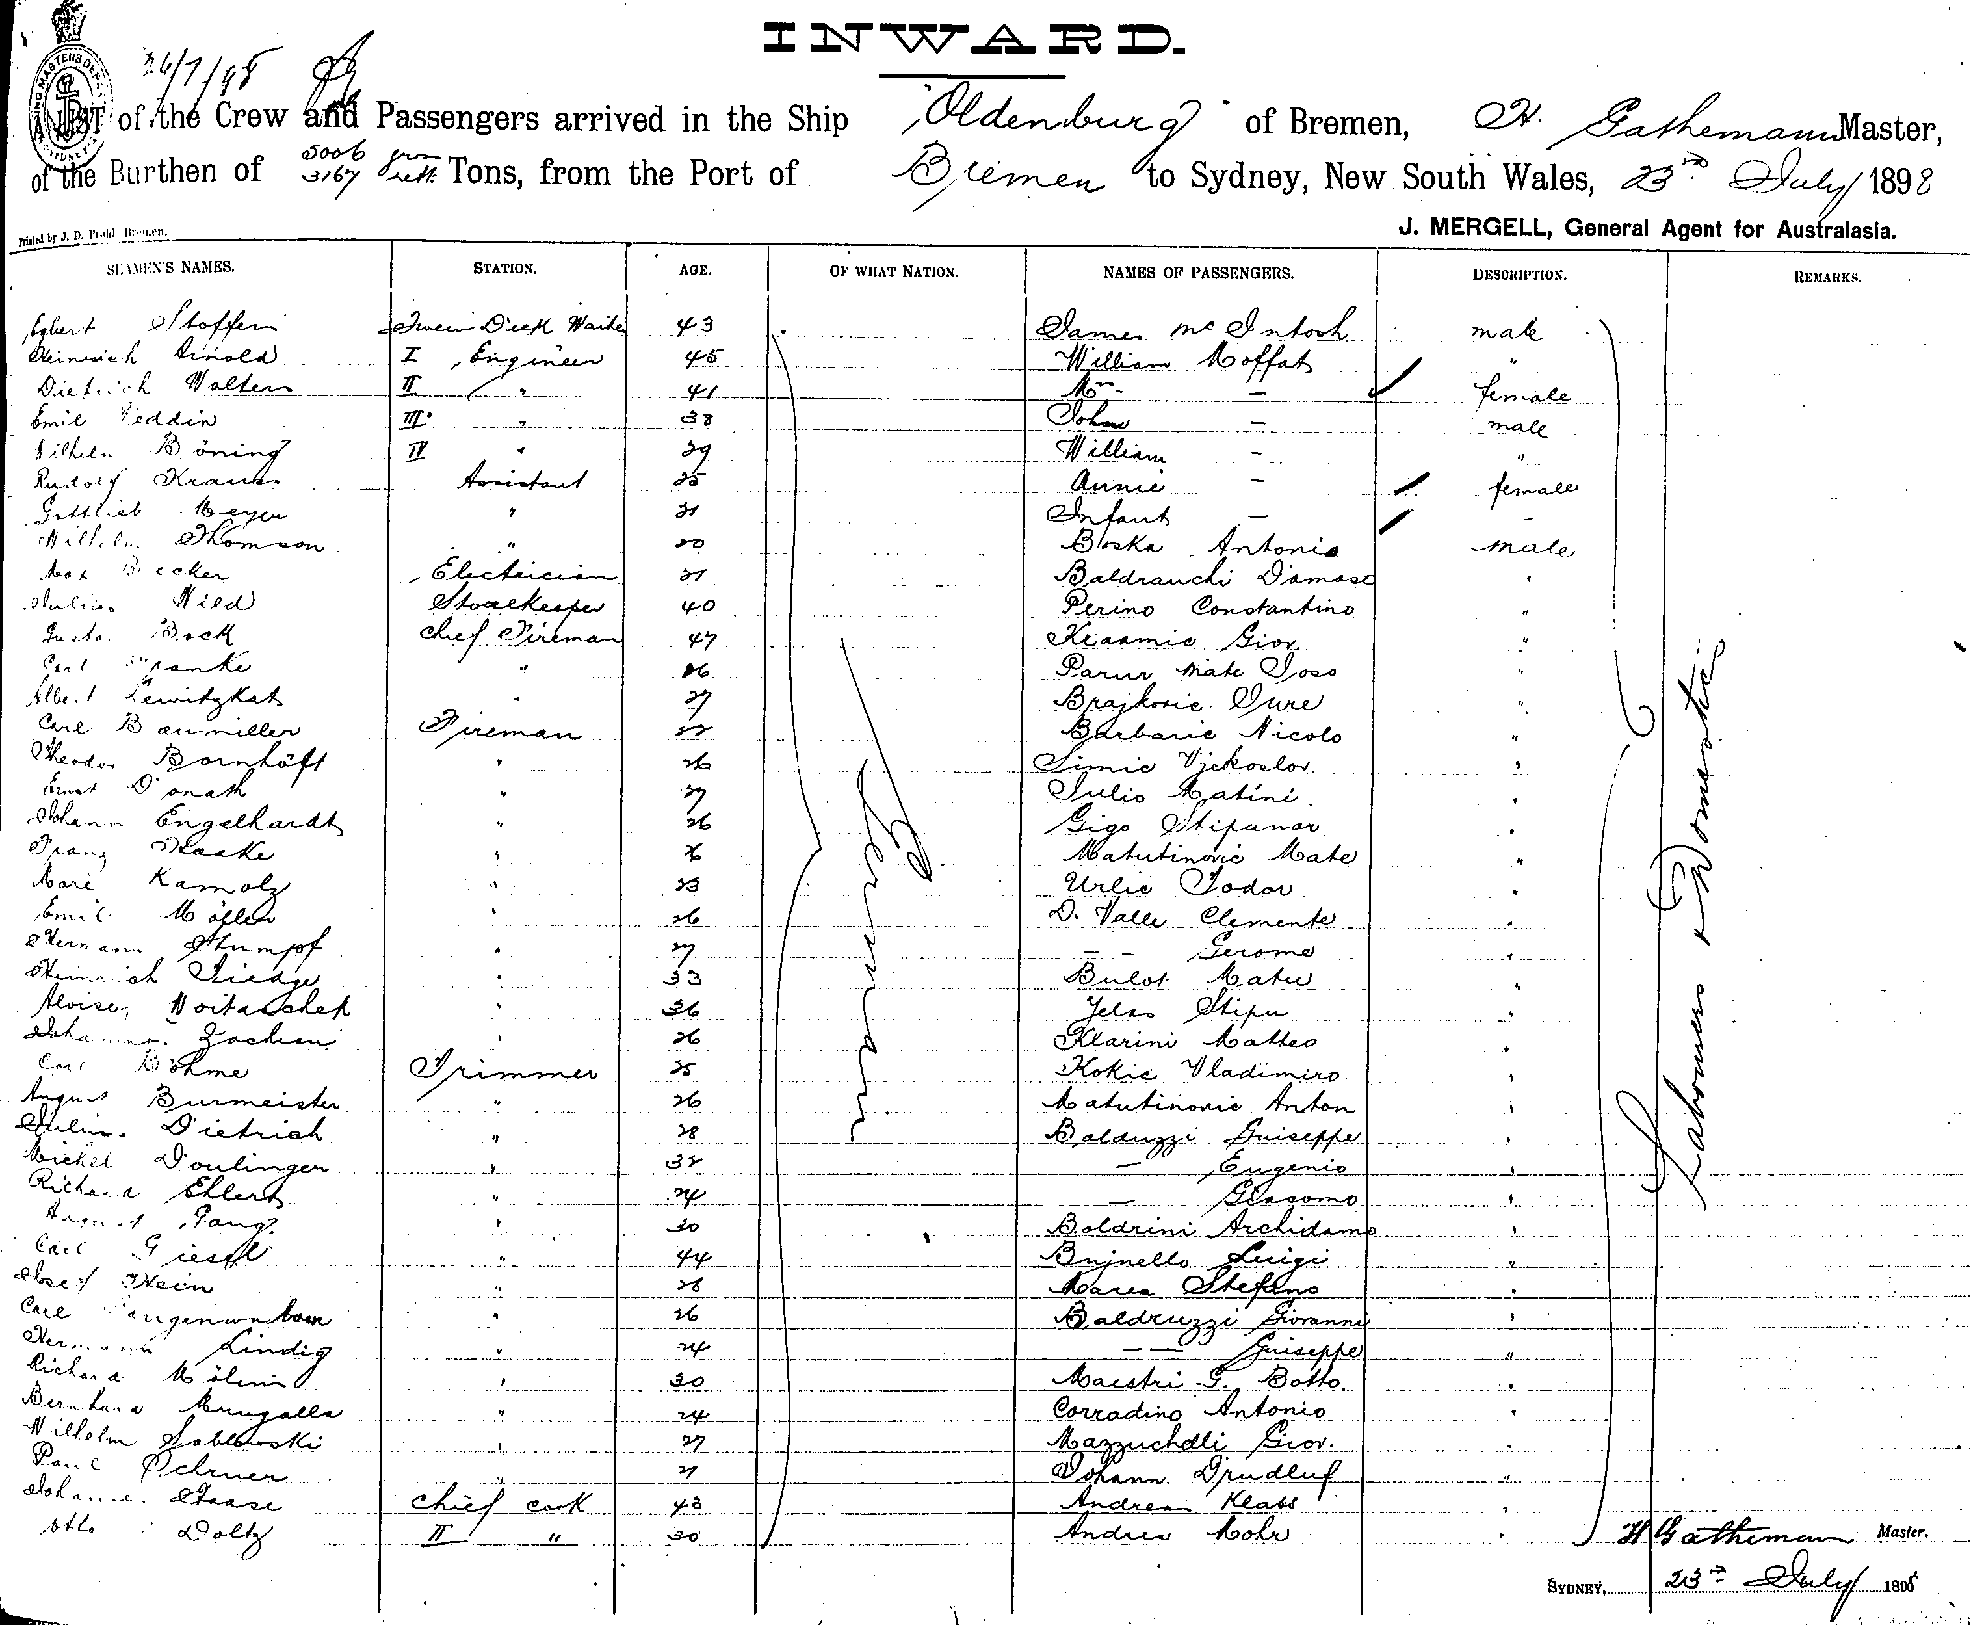 INWARD.
26/7/98
of the Crew and Passengers arrived in the Ship "Oldenburg" of Bremen, H. Gathemann Master,
of the Burthen of 5006 gross 3167 nett. Tons, from the Port of Bremen to Sydney, New South Wales, 23rd July 1898
J. MERGELL, General Agent for Australasia.
Printed by J. D. Bremen.
SEAMEN'S NAMES. STATION. AGE. OF WHAT NATION. NAMES OF PASSENGERS. DESCRIPTION. REMARKS.
Egbert Stoffers 43 James Mc Intosh male
Heinrich Arnold I Engineer 45 William Moffat "
Dietrich Wolters II " 41 Mrs — female
Emil Veddin III " 38 John — male
Wilhelm Böning IV " 29 William — "
Rudolf Kraus Assistant 25 Annie — female
Gottlieb Meyer " 21 Infant — –
Wilhelm Thomson " 20 Antonio male
Max Becker Electrician 21 Baldrauchi "
Julius Wild Storekeeper 40 Perino Constantino "
Bock chief Fireman 47 Giov. "
Carl Franke " 26 Mate Joso "
Albert Lewitzkat " 27 Brajkovic Jure "
Carl Baumiller Fireman 22 Barbaric Nicolo "
Theodor Bornhöft " 26 Simic Vjekoslov. "
Ernst Donath " 27 Julio Matini. "
Johann Engelhardt " 26 Gigo "
Franz Haake " 26 Matutinovic Mate "
Kamolz " 23 Urlic Todor "
Emil Möller " 26 D. Valle Clemente "
Hermann Stumpf " 27 — — Gerome "
Heinrich Tiedge " 33 Bulot "
Woitaschek " 36 Jelas Stipu "
" 26 Klarini Matteo "
Carl Böhme Trimmer 25 Kokic Vladimiro "
August Burmeister " 26 Matutinovic Anton "
Julius Dietrich " 28 Balduzzi Guiseppe "
Michel Doulinger " 32 — Eugenio "
Richard Ehlert " 24 — Giacomo "
August " 30 Boldrini Archidamo "
Carl Giesel " 44 Luigi "
Josef Hein " 28 Stefano "
Carl " 26 Baldruzzi Giovanni "
Hermann Lindig " 24 — — Guiseppe "
Richard " 30 Maestri G. Botto. "
Bernhard " 24 Corradino Antonio "
Wilhelm " 27 Mazzuchelli Giov. "
Paul " 21 Johann "
Haase chief cook 43 Andreas Klabs "
Otto Doltz II " 30 Andrea Mohr "
German
Labourers & Domestic
H Gathemann Master.
SYDNEY, 23rd July 1898